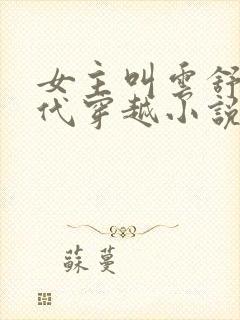 女主叫雲舒
代穿越小說
蘇蔓